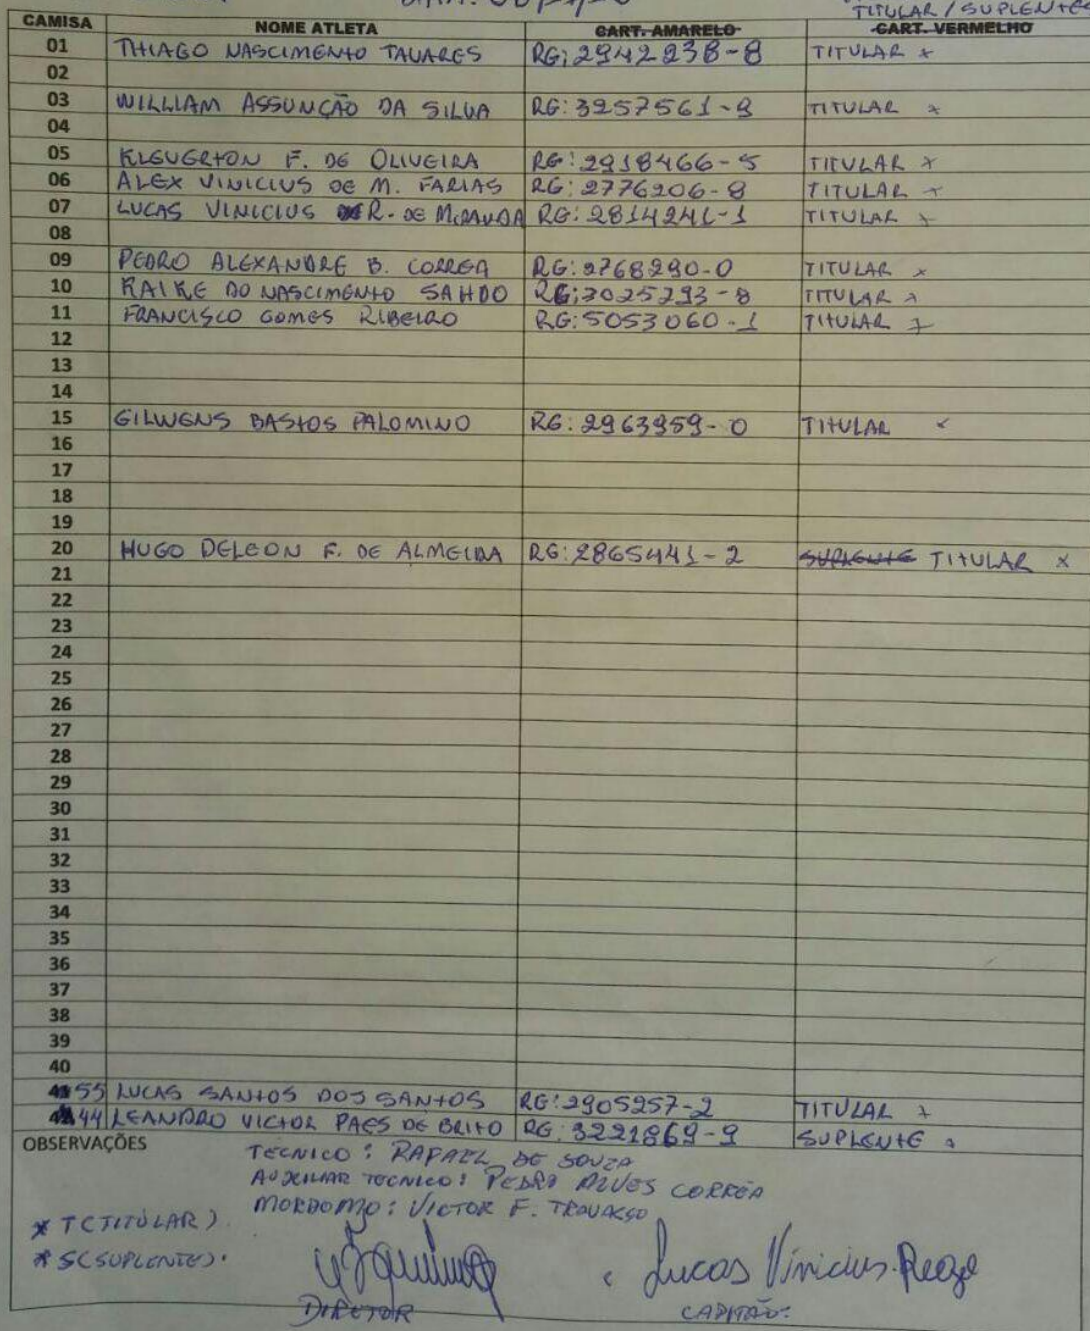 TITULAR / SUPLENTES
CAMISA NOME ATLETA CART. AMARELO CART. VERMELHO
01 THIAGO NASCIMENTO TAVARES RG: 2942938-8 TITULAR x
02
03 WILLLIAM ASSUNÇÃO DA SILVA RG: 3257561-9 TITULAR x
04
05 KLEVERTON F. DE OLIVEIRA RG: 2918466-5 TITULAR x
06 ALEX VINICIUS DE M. FARIAS RG: 2776206-8 TITULAR x
07 LUCAS VINICIUS R. DE MIRANDA RG: 2814241-1 TITULAR x
08
09 PEDRO ALEXANDRE B. CORREA RG: 2768290-0 TITULAR x
10 KAIKE DO NASCIMENTO SAHDO RG: 3025293-8 TITULAR x
11 FRANCISCO GOMES RIBEIRO RG: 5053060-1 TITULAR x
12
13
14
15 GILWENS BASTOS PALOMINO RG: 2963959-0 TITULAR x
16
17
18
19
20 HUGO DELEON F. DE ALMEIDA RG: 2865441-2 SUPLENTE TITULAR x
21
22
23
24
25
26
27
28
29
30
31
32
33
34
35
36
37
38
39
40
55 LUCAS SANTOS DOS SANTOS RG: 2905257-2 TITULAR x
44 LEANDRO VICTOR PAES DE BRITO RG: 3221869-9 SUPLENTE
OBSERVAÇÕES
TECNICO: RAFAEL DE SOUZA
AUXILIAR TECNICO: PEDRO ALVES CORRÊA
MORDOMO: VICTOR F. TRAVASSO
* T(TITULAR)
* S(SUPLENTE).
Lucas Vinicius
DIRETOR CAPITÃO: